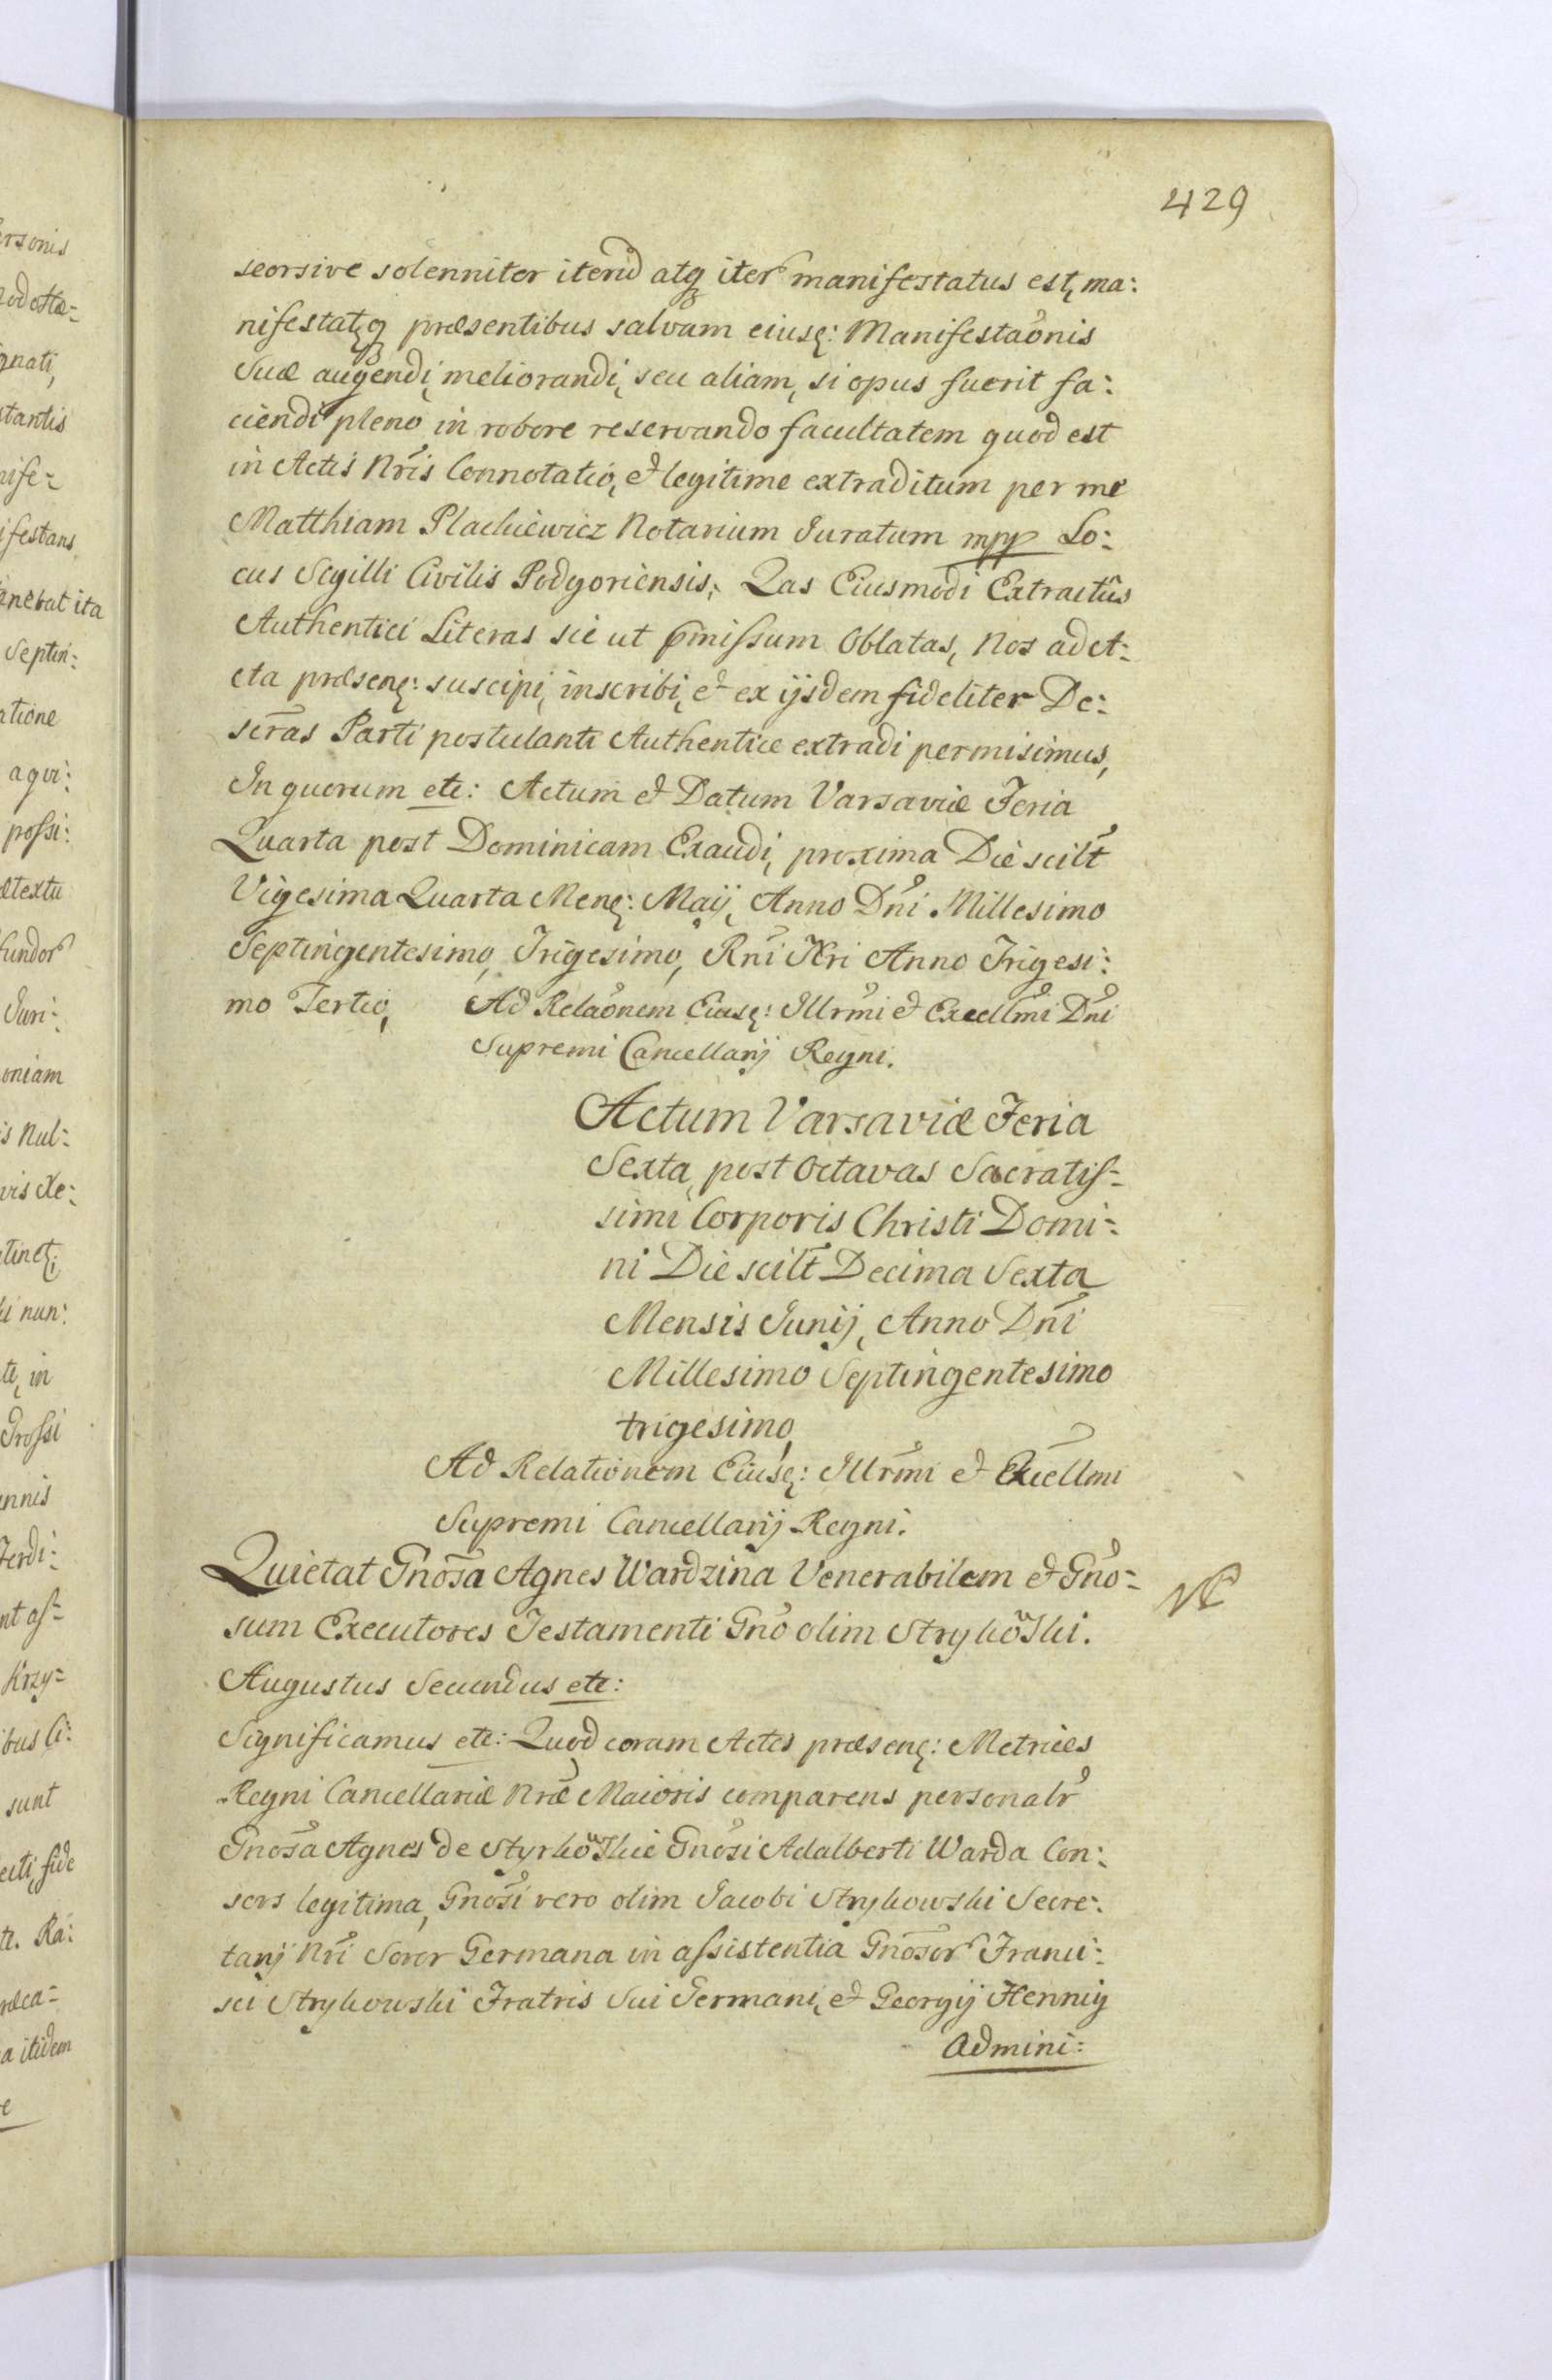 429
seorsive solenniter iterũ atq iter manifestatus est, ma:
nifestatq præsentibus salvam eiusq: Manifestaõnis
Suæ augendi, meliorandi, seu aliam, si opus fuerit fa:
ciendi pleno in robore reservando facultatem quod est
in Actis Nr̃is Connotatio, et legitime extraditum per me
Matthiam Plachiewicz Notarium Iuratum mpp Lo:
cus Sigilli Civilis Podgoriensis; Qas Eiusmodi Extractûs
Authentici Literas sic ut p̃missum Oblatas, Nos ad A:
cta præseng: suscipi, inscribi, et ex ijsdem fideliter De:
scr̃as Parti postulanti Authentice extradi permisimus,
In quorum etc: Actum et Datum Varsaviæ Feria
Quarta post Dominicam Exaudi, proxima Die scilt̃
Vigesima Quarta Meng: Maij, Anno Dñi Millesimo
Septingentesimo, Trigesimo, Rñi Nri Anno Trigesi:
mo Tertio, Ad Relaõnem Eiusg: Illr̃mi et Excellm̃i Dñi
Supremi Cancellarij Regni.
Actum Varsaviæ Feria
Sexta, post Octavas Sacratis=
simi Corporis Christi Domi:
ni Die scilt̃ Decima Sexta
Mensis Junij, Anno Dñi
Millesimo Septingentesimo
trigesimo,
Ad Relationem Eiusg: Illr̃mi et Excellmi
Supremi Cancellarij Regni.
Quietat Gnõsa Agnes Wardzina Venerabilem et Gño=
sum Executores Testamenti Gnõ olim Strykowski.
Augustus Secundus etc:
Significamus etc: Quod coram Actis præseng: Metrices
Regni Cancellariæ Nræ Maioris comparens personalr̃
Gnõsa Agnes de Styrkowskie Gnõsi Adalberti Warda Con:
sors legitima, Gnõsi vero olim Jacobi Strykowski Secre:
tarij Nr̃i Soror Germana in assistentia Gnõsor Franci:
sci Strykowski Fratris Sui Germani, et Georgij Hennig
Admini:
ersonis
gnati,
stantis
nife=
ifestans
enebat ita
Septin:
atione
agvi:
possi:
ætextu
fundor
Juri:
oniam
is Nul:
vis Ae:
i nun:
te, in
Grossi
ennis
Ferdi:
nt as=
Krzy=
bus Ci:
sunt
ecti, fide
te. Ra:
ræca=
a itidem
e